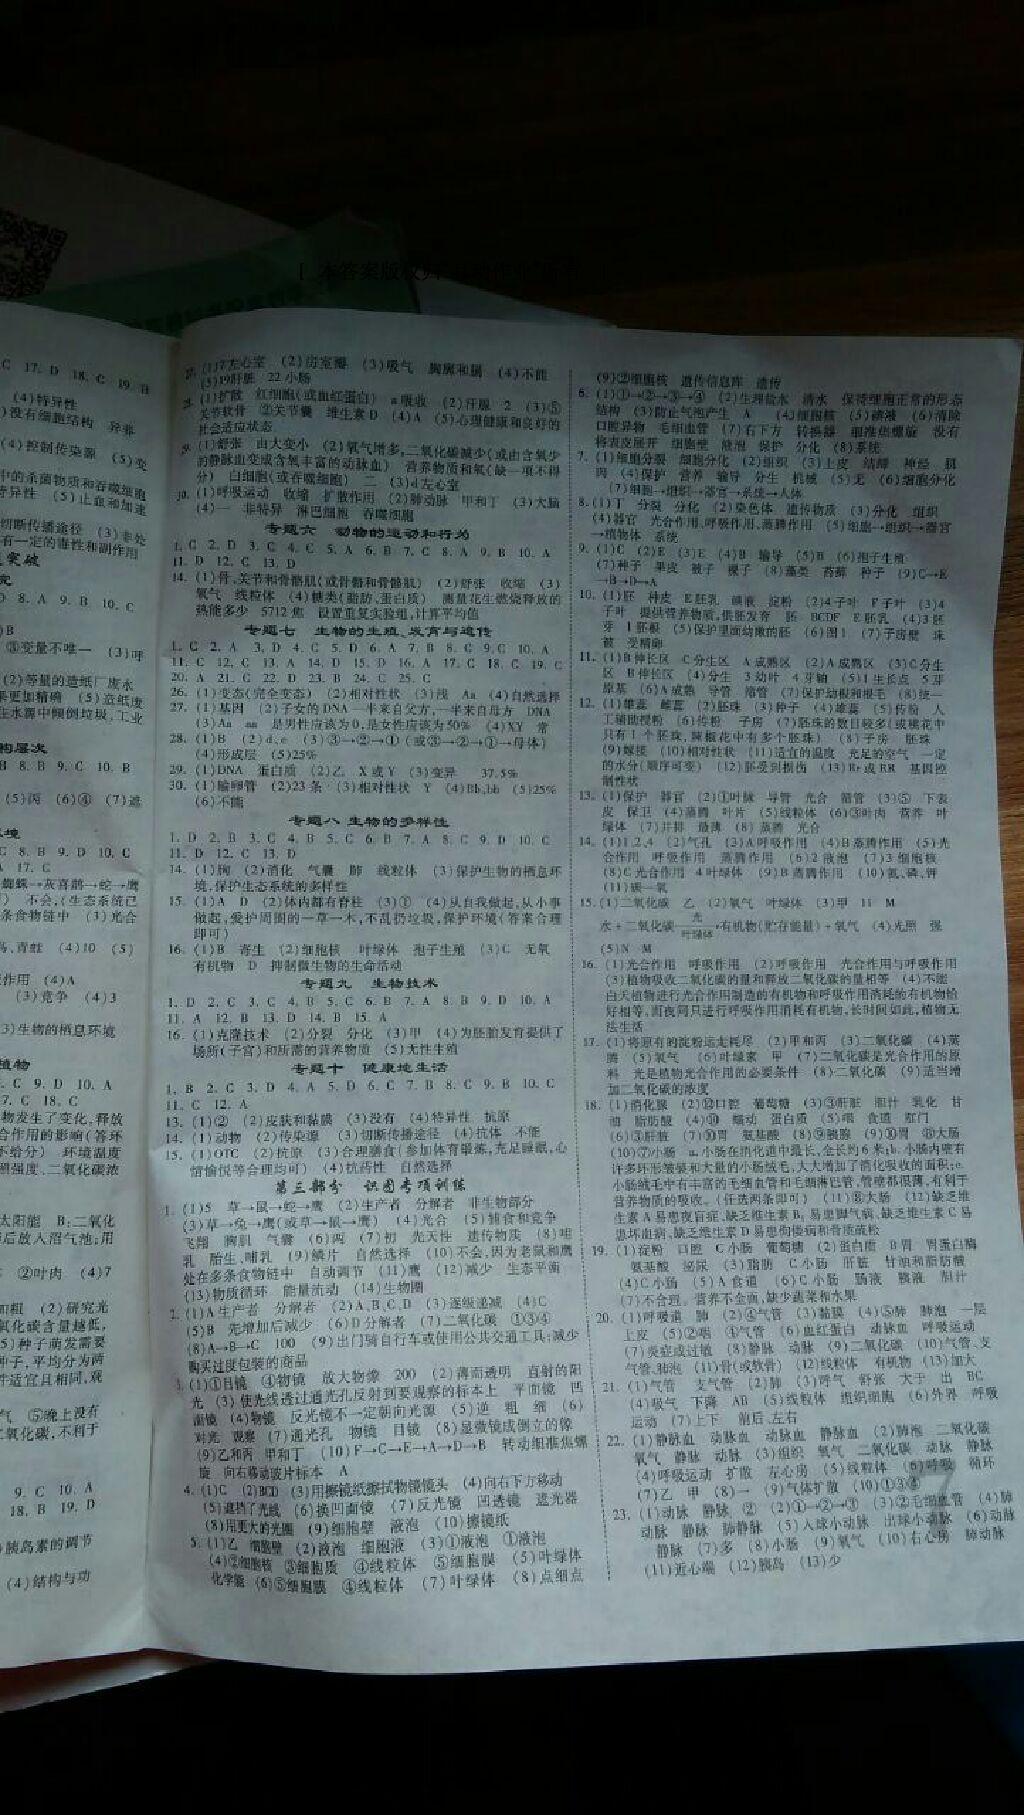 C 17. D 18. C 19. B
(4)特异性
没有细胞结构
(4)控制传染源 (5)变
中的杀菌物质和吞噬细胞
切断传播途径 (3)非处
有一定的毒性和副作用
D 8. A 9. B 10. C
③变量不唯一 (3)呼
(2)等量的造纸厂废水
果更加精确 (5)造纸度
在水源中倾倒垃圾,工业
的层次
B 8. B 9. C 10. B
(5)丙 (6)④ (7)遮
C 8. B 9. D 10. C
A 17. C
不会,(生态系统已
条食物链中 (3)光合
(4)10 (5)
作用 (4)A
(3)竞争 (4)3
3)生物的栖息环境
植物
C 9. D 10. A
7. C 18. C
物发生了变化,释放
合作用的影响(答环
不给分) 环境温度
照强度、二氧化碳浓
太阳能 B:二氧化
后放入沼气池;用
②叶肉 (4)7
(2)研究光
氧化碳含量越低,
5)种子萌发需要
种子,平均分为两
件适宜且相同,观
气 ⑤晚上没有
二氧化碳,不利于
9. C 10. A
18. B 19. D
胰岛素的调节
(4)结构与功
(5)19肝脏 22小肠
关节软骨 ②关节囊 维生素D (4)A (5)心理健康和良好的
社会适应状态
(1)舒张 由大变小 (2)氧气增多,二氧化碳减少(或由含氧少
的静脉血变成含氧丰富的动脉血) 营养物质和氧(缺一项不得
分) 白细胞(或吞噬细胞) 二 (3)d左心室
30. (1)呼吸运动 收缩 扩散作用 (2)肺动脉 甲和丁 (3)大脑
(4)一 非特异 淋巴细胞 吞噬细胞
专题六 动物的运动和行为
1. C 2. D 3. C 4. C 5. A 6. B 7. C 8. A 9. B 10. A
11. D 12. C 13. D
14. (1)骨、关节和骨骼肌(或骨骼和骨骼肌) (2)舒张 收缩 (3)
氧气 线粒体 (4)糖类(脂肪、蛋白质) 测量花生燃烧释放的
热能多少 5712焦 设置重复实验组,计算平均值
专题七 生物的生殖、发育与遗传
1. C 2. A 3. D 4. C 5. D 6. A 7. B 8. C 9. C 10. A
11. C 12. C 13. A 14. D 15. D 16. A 17. C 18. C 19. C
20. A 21. C 22. D 23. B 24. C 25. C
26. (1)变态(完全变态) (2)相对性状 (3)浅 Aa (4)自然选择
27. (1)基因 (2)子女的DNA一半来自父方,一半来自母方 DNA
(3)Aa aa 是男性应该为0,是女性应该为50% (4)XY 常
28. (1)B (2)d、e (3)③→②→①(或③→②→①→母体)
(4)形成层 (5)25%
29. (1)DNA 蛋白质 (2)乙 X或Y (3)变异 37.5%
30. (1)输卵管 (2)23条 (3)相对性状 Y (4)Bb、bb (5)25%
(6)不能
专题八 生物的多样性
1. D 2. B 3. C 4. B 5. C 6. B 7. A 8. C 9. D 10. C
11. D 12. C 13. D
14. (1)胸 (2)消化 气囊 肺 线粒体 (3)保护生物的栖息环
境,保护生态系统的多样性
15. (1)A D (2)体内都有脊柱 (3)① (4)从自我做起,从小事
做起,爱护周围的一草一木,不乱扔垃圾,保护环境(答案合理
即可)
16. (1)B 寄生 (2)细胞核 叶绿体 孢子生殖 (3)C 无氧
有机物 D 抑制微生物的生命活动
专题九 生物技术
1. D 2. C 3. C 4. B 5. C 6. B 7. A 8. B 9. D 10. A
11. A 12. B 13. D 14. B 15. A
16. (1)克隆技术 (2)分裂 分化 (3)甲 (4)为胚胎发育提供了
场所(子宫)和所需的营养物质 (5)无性生殖
专题十 健康地生活
1. B 2. C 3. D 4. A 5. D 6. C 7. B 8. C 9. B 10. C
11. C 12. A
13. (1)② (2)皮肤和黏膜 (3)没有 (4)特异性 抗原
14. (1)动物 (2)传染源 (3)切断传播途径 (4)抗体 不能
15. (1)OTC (2)抗原 (3)合理膳食(参加体育锻炼,充足睡眠,心
情愉悦等合理均可) (4)抗药性 自然选择
第三部分 识图专项训练
1. (1)5 草→鼠→蛇→鹰 (2)生产者 分解者 非生物部分
(3)草→兔→鹰(或草→鼠→鹰) (4)光合 (5)捕食和竞争
飞翔 胸肌 气囊 (6)两 (7)初 先天性 遗传物质 (8)哺
乳 胎生、哺乳 (9)鳞片 自然选择 (10)不会,因为老鼠和鹰
处在多条食物链中 自动调节 (11)鹰 (12)减少 生态平衡
(13)物质循环 能量流动 (14)生物圈
2. (1)A生产者 分解者 (2)A、B、C、D (3)逐级递减 (4)C
(5)B 先增加后减少 (6)D分解者 (7)二氧化碳 ①③④
(8)A→B→C 100 (9)出门骑自行车或使用公共交通工具;减少
购买过度包装的商品
3. (1)①目镜 ④物镜 放大物像 200 (2)薄而透明 直射的阳
光 (3)使光线透过通光孔反射到要观察的标本上 平面镜 凹
面镜 (4)物镜 反光镜不一定朝向光源 (5)逆 粗 细 (6)
对光 观察 (7)通光孔 物镜 目镜 (8)显微镜成倒立的像
(9)乙和丙 甲和丁 (10)F→C→E→A→D→B 转动细准焦螺
旋 向右移动玻片标本 A
4. (1)C (2)BCD (3)用擦镜纸擦拭物镜镜头 (4)向右下方移动
(5)遮挡了光线 (6)换凹面镜 (7)反光镜 凹透镜 遮光器
(8)用更大的光圈 (9)细胞壁 液泡 (10)擦镜纸
5. (1)乙 细胞壁 (2)液泡 细胞液 (3)①液泡 ①液泡
(4)②细胞核 ③细胞质 ④线粒体 ⑤细胞膜 (5)叶绿体
化学能 (6)⑤细胞膜 ④线粒体 (7)叶绿体 (8)点细点
(9)②细胞核 遗传信息库 遗传
6. (1)①→②→③→④ (2)生理盐水 清水 保持细胞正常的形态
结构 (3)防止气泡产生 A (4)细胞核 (5)碘液 (6)清除
口腔异物 毛细血管 (7)右下方 转换器 细准焦螺旋 没有
将表皮展开 细胞壁 液泡 保护 分化 (8)系统
7. (1)细胞分裂 细胞分化 (2)组织 (3)上皮 结缔 神经 肌
肉 (4)保护 营养 输导 分生 机械 (5)无 (6)细胞分化
(7)细胞→组织→器官→系统→人体
8. (1)丁 分裂 分化 (2)染色体 遗传物质 (3)分化 组织
(4)器官 光合作用、呼吸作用、蒸腾作用 (5)细胞→组织→器官
→植物体 系统
9. (1)C (2)E (3)E (4)B 输导 (5)B (6)孢子生殖
(7)种子 果皮 被子 裸子 (8)藻类 苔藓 种子 (9)C→E
→B→D→A
10. (1)胚 种皮 E胚乳 碘液 淀粉 (2)4子叶 F子叶 (3)4
子叶 提供营养物质,供胚发育 胚 BCDF E胚乳 (4)3胚
芽 1胚根 (5)保护里面幼嫩的胚 (6)图1 (7)子房壁 珠
被 受精卵
11. (1)B伸长区 C分生区 A成熟区 (2)A成熟区 (3)C分生
区 B伸长区 (4)分生 3幼叶 4芽轴 (5)1生长点 5芽
原基 (6)A成熟 导管 筛管 (7)保护幼根和根毛 (8)统一
12. (1)雄蕊 雌蕊 (2)胚珠 (3)种子 (4)雄蕊 (5)传粉 人
工辅助授粉 (6)传粉 子房 (7)胚珠的数目较多(或桃花中
只有1个胚珠,辣椒花中有多个胚珠) (8)子房 胚珠
(9)嫁接 (10)相对性状 (11)适宜的温度 充足的空气 一定
的水分(顺序可变) (12)胚受到损伤 (13)Rr或RR 基因控
制性状
13. (1)保护 器官 (2)①叶脉 导管 光合 筛管 (3)⑤ 下表
皮 保卫 (4)蒸腾 叶片 (5)线粒体 (6)③叶肉 营养 叶
绿体 (7)并排 最薄 (8)蒸腾 光合
14. (1)1、2、4 (2)气孔 (3)A呼吸作用 (4)B蒸腾作用 (5)光
合作用 呼吸作用 蒸腾作用 (6)2液泡 (7)3细胞核
(8)C光合作用 4叶绿体 (9)B蒸腾作用 (10)氮、磷、钾
(11)碳—氧
15. (1)二氧化碳 乙 (2)氧气 叶绿体 (3)甲 H M
水+二氧化碳 光 叶绿体 有机物(贮存能量)+氧气 (4)光照 强
(5)N M
16. (1)光合作用 呼吸作用 (2)呼吸作用 光合作用与呼吸作用
(3)植物吸收二氧化碳的量和释放二氧化碳的量相等 (4)不能
白天植物进行光合作用制造的有机物和呼吸作用消耗的有机物恰
好相等,而夜间只进行呼吸作用消耗有机物,长时间如此,植物无
法生活
17. (1)将原有的淀粉运走耗尽 (2)甲和丙 (3)二氧化碳 (4)蒸
腾 (5)氧气 (6)叶绿素 甲 (7)二氧化碳是光合作用的原
料 光是植物光合作用的必要条件 (8)二氧化碳 (9)适当增
加二氧化碳的浓度
18. (1)消化腺 (2)⑫口腔 葡萄糖 (3)③肝脏 胆汁 乳化 甘
油 脂肪酸 (4)⑩ 蠕动 蛋白质 (5)咽 食道 肛门
(6)③肝脏 (7)⑩胃 氨基酸 (8)⑨胰腺 (9)⑩胃 ⑧大肠
(10)⑦小肠 a.小肠在消化道中最长,全长约6米;b.小肠内壁有
许多环形皱襞和大量的小肠绒毛,大大增加了消化吸收的面积;c.
小肠绒毛中有丰富的毛细血管和毛细淋巴管,管壁都很薄,有利于
营养物质的吸收。(任选两条即可) (11)⑧大肠 (12)缺乏维
生素A易患夜盲症、缺乏维生素B₁易患脚气病、缺乏维生素C易
患坏血病、缺乏维生素D易患佝偻病和骨质疏松
19. (1)淀粉 口腔 C小肠 葡萄糖 (2)蛋白质 B胃 胃蛋白酶
氨基酸 泌尿 (3)脂肪 C小肠 肝脏 甘油和脂肪酸
(4)C小肠 (5)A食道 (6)C小肠 肠液 胰液 胆汁
(7)不合理。营养不全面,缺少蔬菜和水果
20. (1)呼吸道 肺 (2)④气管 (3)黏膜 (4)⑤肺 肺泡 一层
上皮 (5)②咽 ④气管 (6)血红蛋白 动脉血 呼吸运动
(7)炎症或过敏 (8)静脉 动脉 (9)二氧化碳 (10)气管、支
气管、肺泡 (11)骨(或软骨) (12)线粒体 有机物 (13)加大
21. (1)气管 支气管 (2)肺 (3)呼气 舒张 大于 出 BC
(4)吸气 下降 AB (5)线粒体 组织细胞 (6)外界 呼吸
运动 (7)上下 前后、左右
22. (1)静脉血 动脉血 动脉血 静脉血 (2)肺泡 二氧化碳
氧气 静脉 动脉 (3)组织 氧气 二氧化碳 动脉 静脉
(4)呼吸运动 扩散 左心房 (5)线粒体 (6)呼吸 循环
(7)乙 甲 (8)一 (9)气体扩散 (10)①③④
23. (1)动脉 静脉 ② (2)①→②→③ (3)②毛细血管 (4)肺
动脉 静脉 肺静脉 (5)入球小动脉 出球小动脉 (6)动脉
静脉 (7)多 (8)小肠 (9)氧气 (10)右心房 肺动脉
(11)近心端 (12)胰岛 (13)少